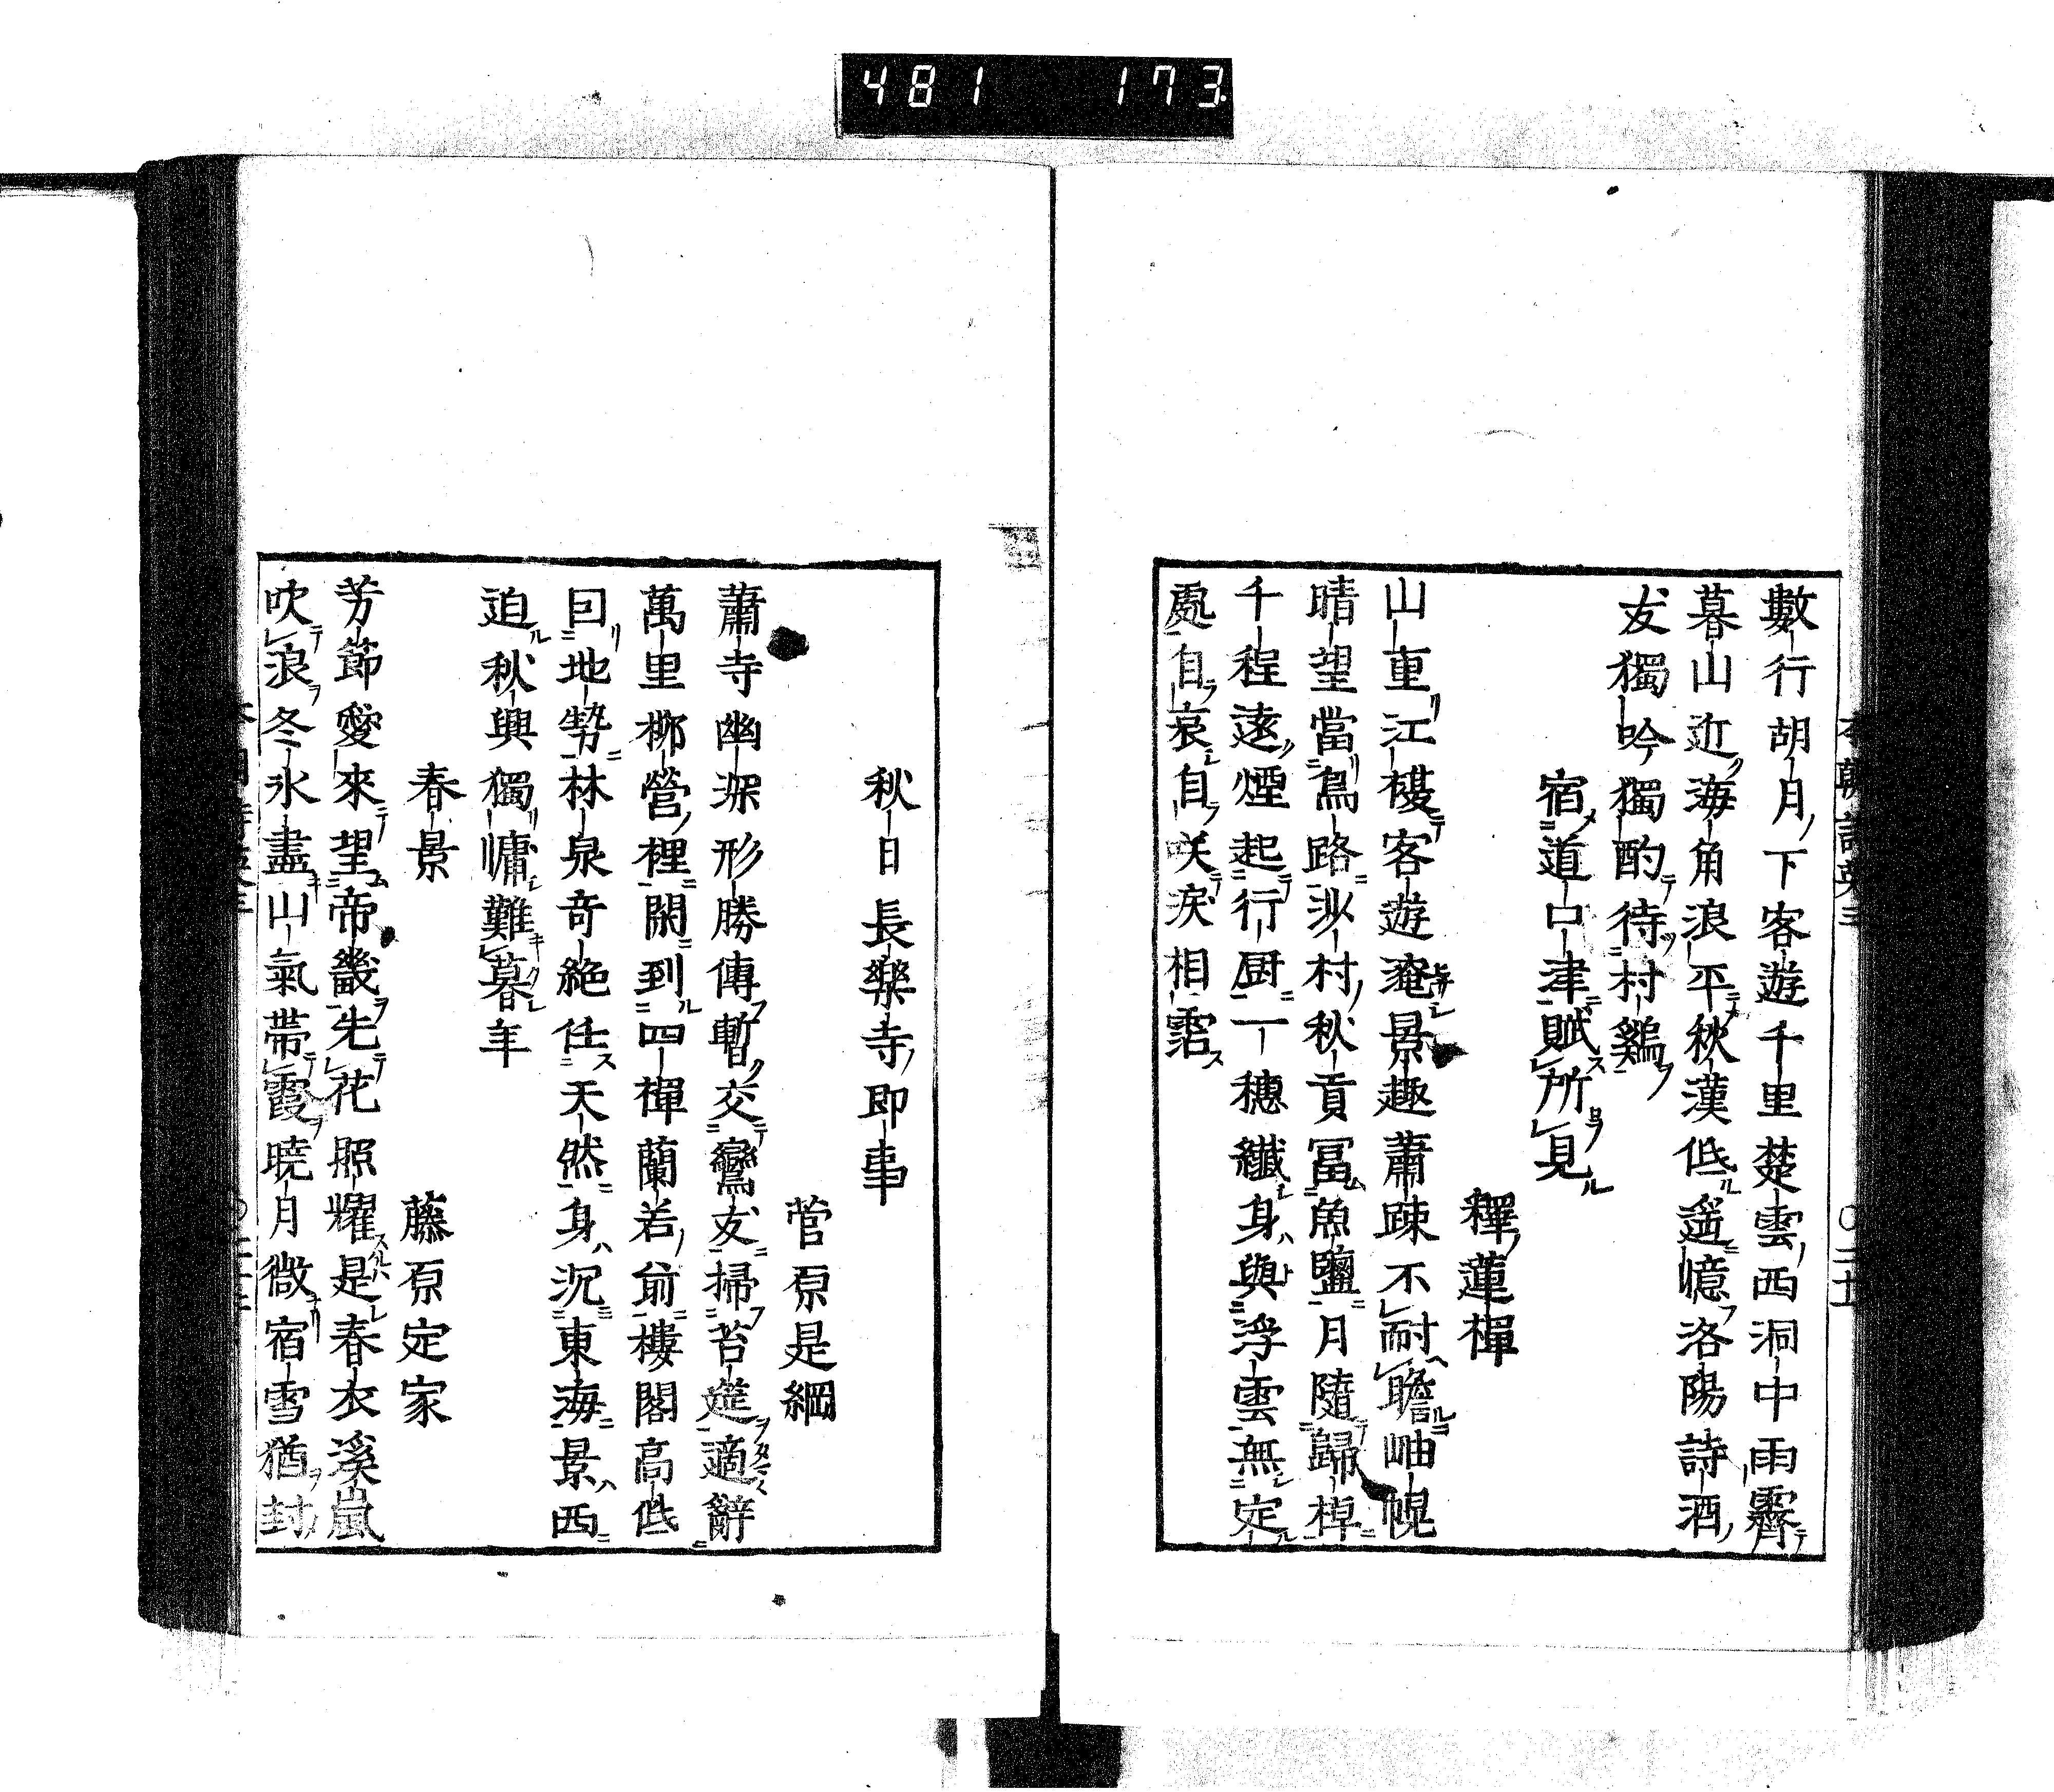 481 173
數行胡月下客遊千里楚雲西洞中雨霽
暮山近海角浪平秋漢低遥憶洛陽詩酒
友獨吟獨酌待村鷄
宿道口津賦所見
釋蓮禪
山重江複客遊淹景趣蕭踈不耐瞻岫幌
晴望當鳥路沙村秋貢冨魚鹽月隨歸棹
千程遠煙起行厨一穗纖身與浮雲無定
處自哀自咲淚相霑
秋日長樂寺即事
菅原是綱
蕭寺幽深形勝傳暫交鸞友掃苔莚適辭
萬里揶營裡閑到四禪蘭若前樓閣高低
回地勢林泉奇絶任天然身沉東海景西
迫秋興獨慵難暮年
春景
藤原定家
芳節愛來望帝畿先花照耀是春衣溪嵐
吹浪冬氷盡山氣帶霞曉月微宿雪猶封